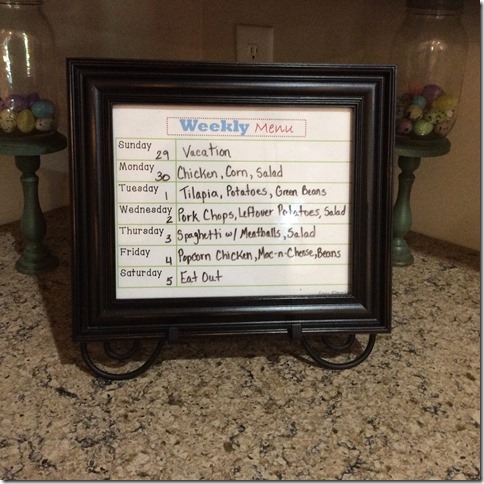 Weekly Menu
Sunday 29 Vacation
Monday 30 Chicken, Corn, Salad
Tuesday 1 Tilapia, Potatoes, Green Beans
Wednesday 2 Pork Chops, Leftover Potatoes, Salad
Thursday 3 Spaghetti w/ Meatballs, Salad
Friday 4 Popcorn Chicken, Mac-n-Cheese, Beans
Saturday 5 Eat Out